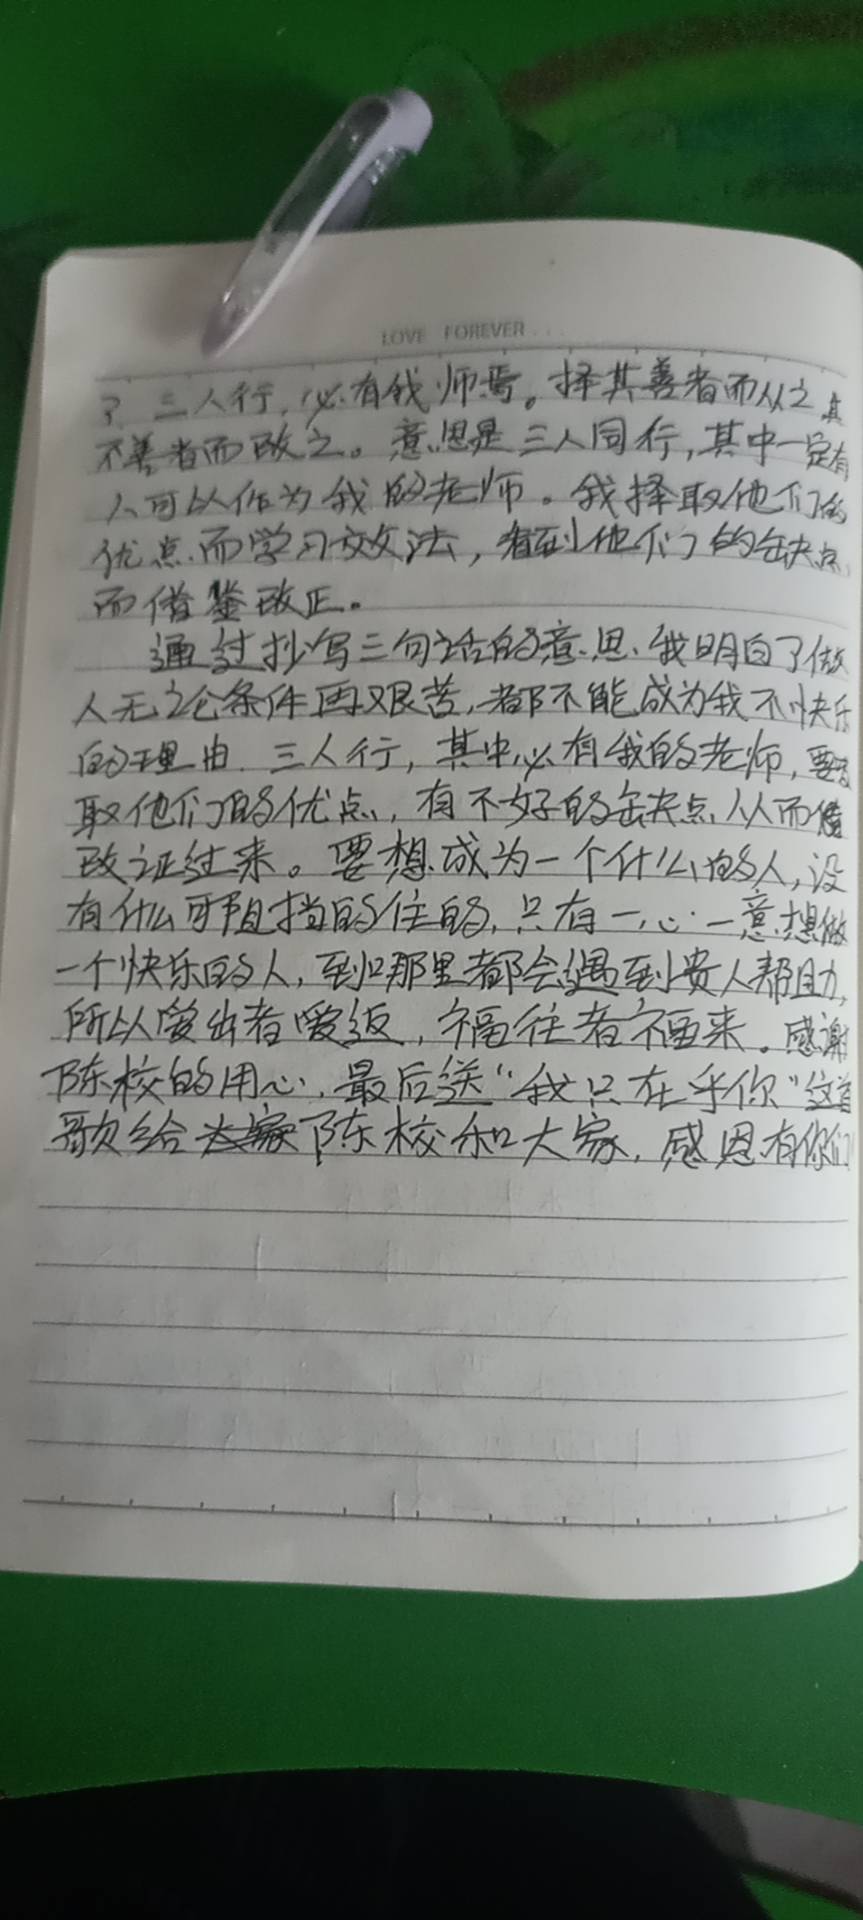 LOVE FOREVER...
3. 三人行,必有我师焉。择其善者而从之其
不善者而改之。意思是三人同行,其中一定有
人可以作为我的老师。我择取他们的
优点而学习效法,看到他们的缺点,
而借鉴改正。
通过抄写三句话的意思、我明白了做
人无论条件再艰苦,都不能成为我不快乐
的理由. 三人行,其中必有我的老师,要
取他们的优点,有不好的缺点从而借
改证过来。要想成为一个什么的人,没
有什么可阻挡的住的,只有一心一意想做
一个快乐的人,到哪里都会遇到贵人帮助,
所以爱出者爱返,福往者福来。感谢
陈校的用心,最后送“我只在乎你”这首
歌给陈校和大家,感恩有你们